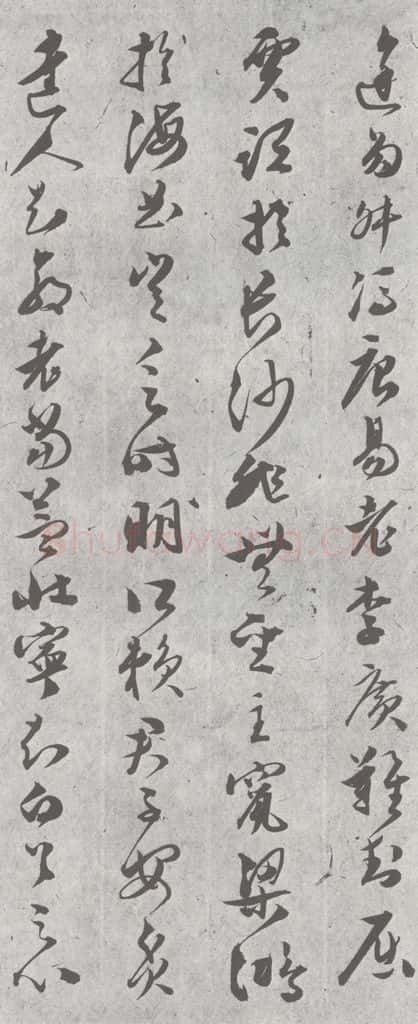 途多舛馮唐易老李廣難封屈
賈誼於長沙非無聖主竄梁鴻
於海曲豈乏時明所賴君子安貧
達人知命老當益壯寧知白首之心
shufawang.cn